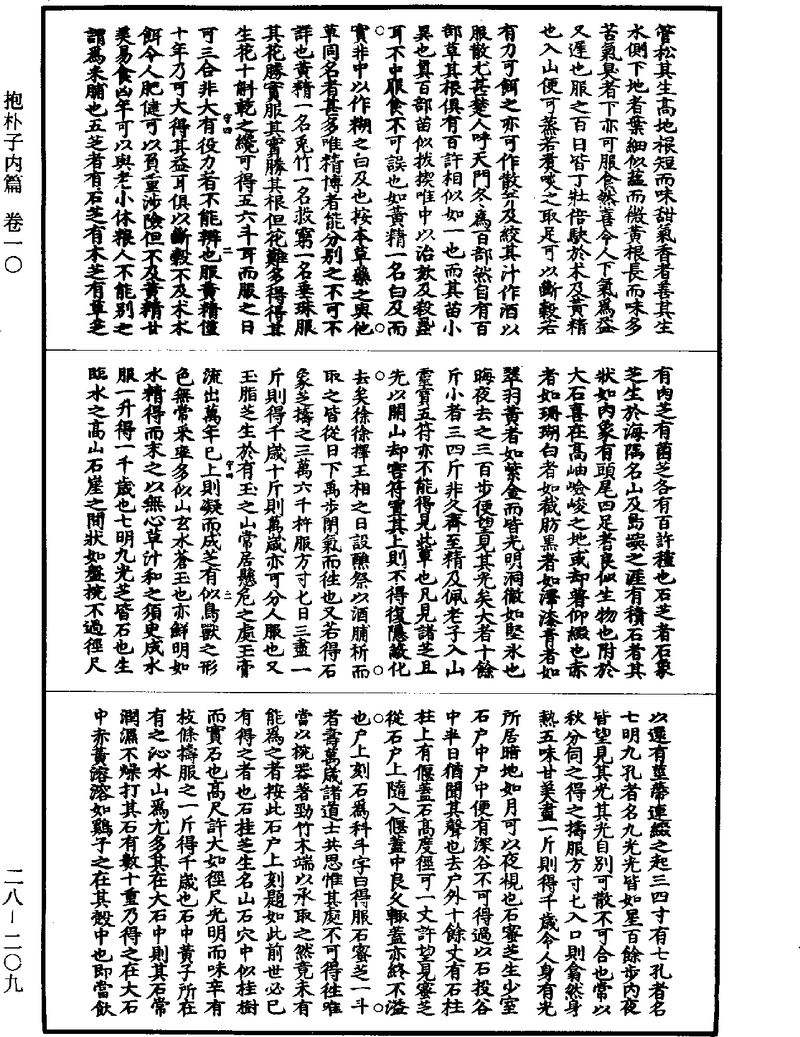 管松其生高地根短而味甜氣香者善其生
水側下地者葉細似蘊而微黃根長而味多
苦氣臭者下亦可服食然喜令人下氣為益
又遲也服之百日皆丁壯倍駃於朮及黃精
也入山便可蒸若煮啖之取足可以斷穀若
有力可餌之亦可作散并及絞其汁作酒以
服散尤甚楚人呼天門冬為百部然自有百
部草其根俱有百許相似如一也而其苗小
異也真百部苗似拔揳唯中以治欬及殺蝨
耳不中服食不可誤也如黃精一名白及而
實非中以作糊之白及也按本草藥之與他
草同名者甚多唯精博者能分別之不可不
詳也黃精一名兎竹一名救窮一名垂珠服
其花勝實服其實勝其根但花難多得得其
生花十斛乾之纔可得五六斗耳而服之日
可三合非大有役力者不能辨也服黃精僅
十年乃可大得其益耳俱以斷穀不及朮朮
餌令人肥健可以負重涉險但不及黃精甘
美易食凶年可以與老小休糧人不能別之
謂為米脯也五芝者有石芝有木芝有草芝
有肉芝有菌芝各有百許種也石芝者石象
芝生於海隅名山及島嶼之涯有積石者其
狀如肉象有頭尾四足者良似生物也附於
大石喜在高岫嶮峻之地或却著仰綴也赤
者如珊瑚白者如截肪黑者如澤漆青者如
翠羽黃者如紫金而皆光明洞徹如堅氷也
晦夜去之三百步便望見其光矣大者十餘
斤小者三四斤非久齋至精及佩老子入山
靈寶五符亦不能得見此輩也凡見諸芝且
先以開山却害符置其上則不得復隱蔽化
去矣徐徐擇王相之日設醮祭以酒脯祈而
取之皆從日下禹步閉氣而往也又若得石
象芝擣之三萬六千杵服方寸七日三盡一
斤則得千歲十斤則萬歲亦可分人服也又
玉脂芝生於有玉之山常居懸危之處玉膏
流出萬年已上則凝而成芝有似鳥獸之形
色無常采率多似山玄水蒼玉也亦鮮明如
水精得而末之以無心草汁和之須臾成水
服一升得一千歲也七明九光芝皆石也生
臨水之高山石崖之間狀如盤椀不過徑尺
以還有莖蔕連綴之起三四寸有七孔者名
七明九孔者名九光光皆如星百餘步內夜
皆望見其光其光自別可散不可合也常以
秋分伺之得之擣服方寸七入口則翕然身
熱五味甘美盡一斤則得千歲令人身有光
所居暗地如月可以夜視也石蜜芝生少室
石户中户中便有深谷不可得過以石投谷
中半日猶聞其聲也去户外十餘丈有石柱
柱上有偃蓋石高度徑可一丈許望見蜜芝
從石户上隨入偃蓋中良久輙蓋亦終不溢
也户上刻石為科斗字曰得服石蜜芝一斗
者壽萬歲諸道士共思惟其處不可得往唯
當以椀器著勁竹木端以承取之然竟未有
能為之者按此石户上刻題如此前世必已
有得之者也石桂芝生名山石穴中似桂樹
而實石也高尺許大如徑尺光明而味辛有
枝條擣服之一斤得千歲也石中黃子所在
有之沁水山為尤多其在大石中則其石常
潤濕不燥打其石有數十重乃得之在大石
中赤黃溶溶如鷄子之在其殼中也即當飲
抱朴子內篇 卷一〇
二八—二〇九